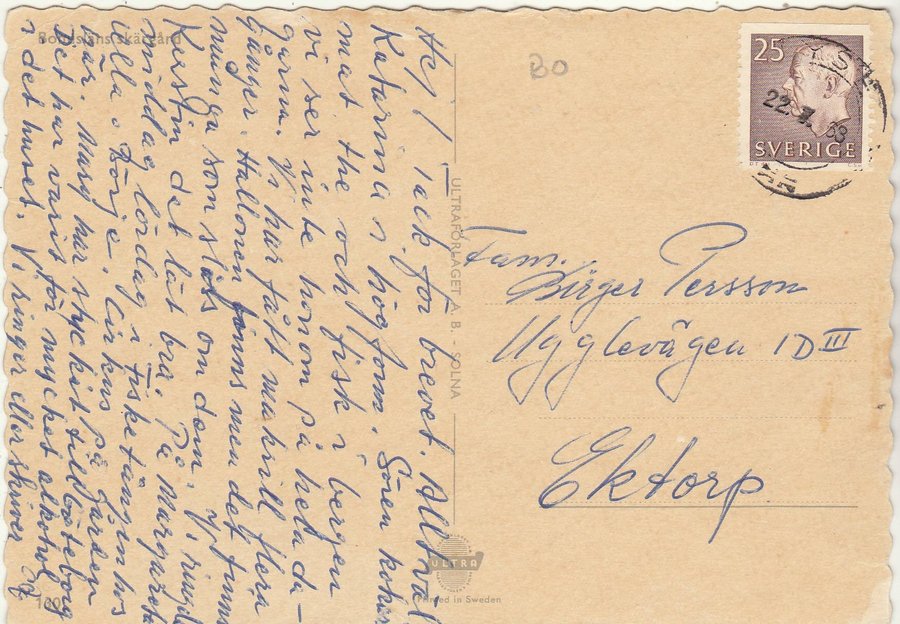 Bohusläns skärgård
Hej! Tack för brevet. Allt väl
Katarina i högform. Sören kokar
mat the och fisk i bergen
vi ser inte honom på heta da-
garna. Vi har fått makrill flera
gånger. Hallonen finns men det finns
många som slåss om dem. Vi ringde
Kerstin det lät bra. På Margareta
middag lördag i Fisketången hos
Ulla o Börje. Cirkus på gården
här. Marg har styckit till Göteborg
Det har varit för mycket alkohol
i det huset. Vi ringer eller skriver
180
ULTRAFÖRLAGET A. B. - SOLNA
ULTRA
Printed in Sweden
BO
25
SVERIGE
22. 7. 63
Fam.
Birger Persson
Ugglevägen 1D III
Ektorp